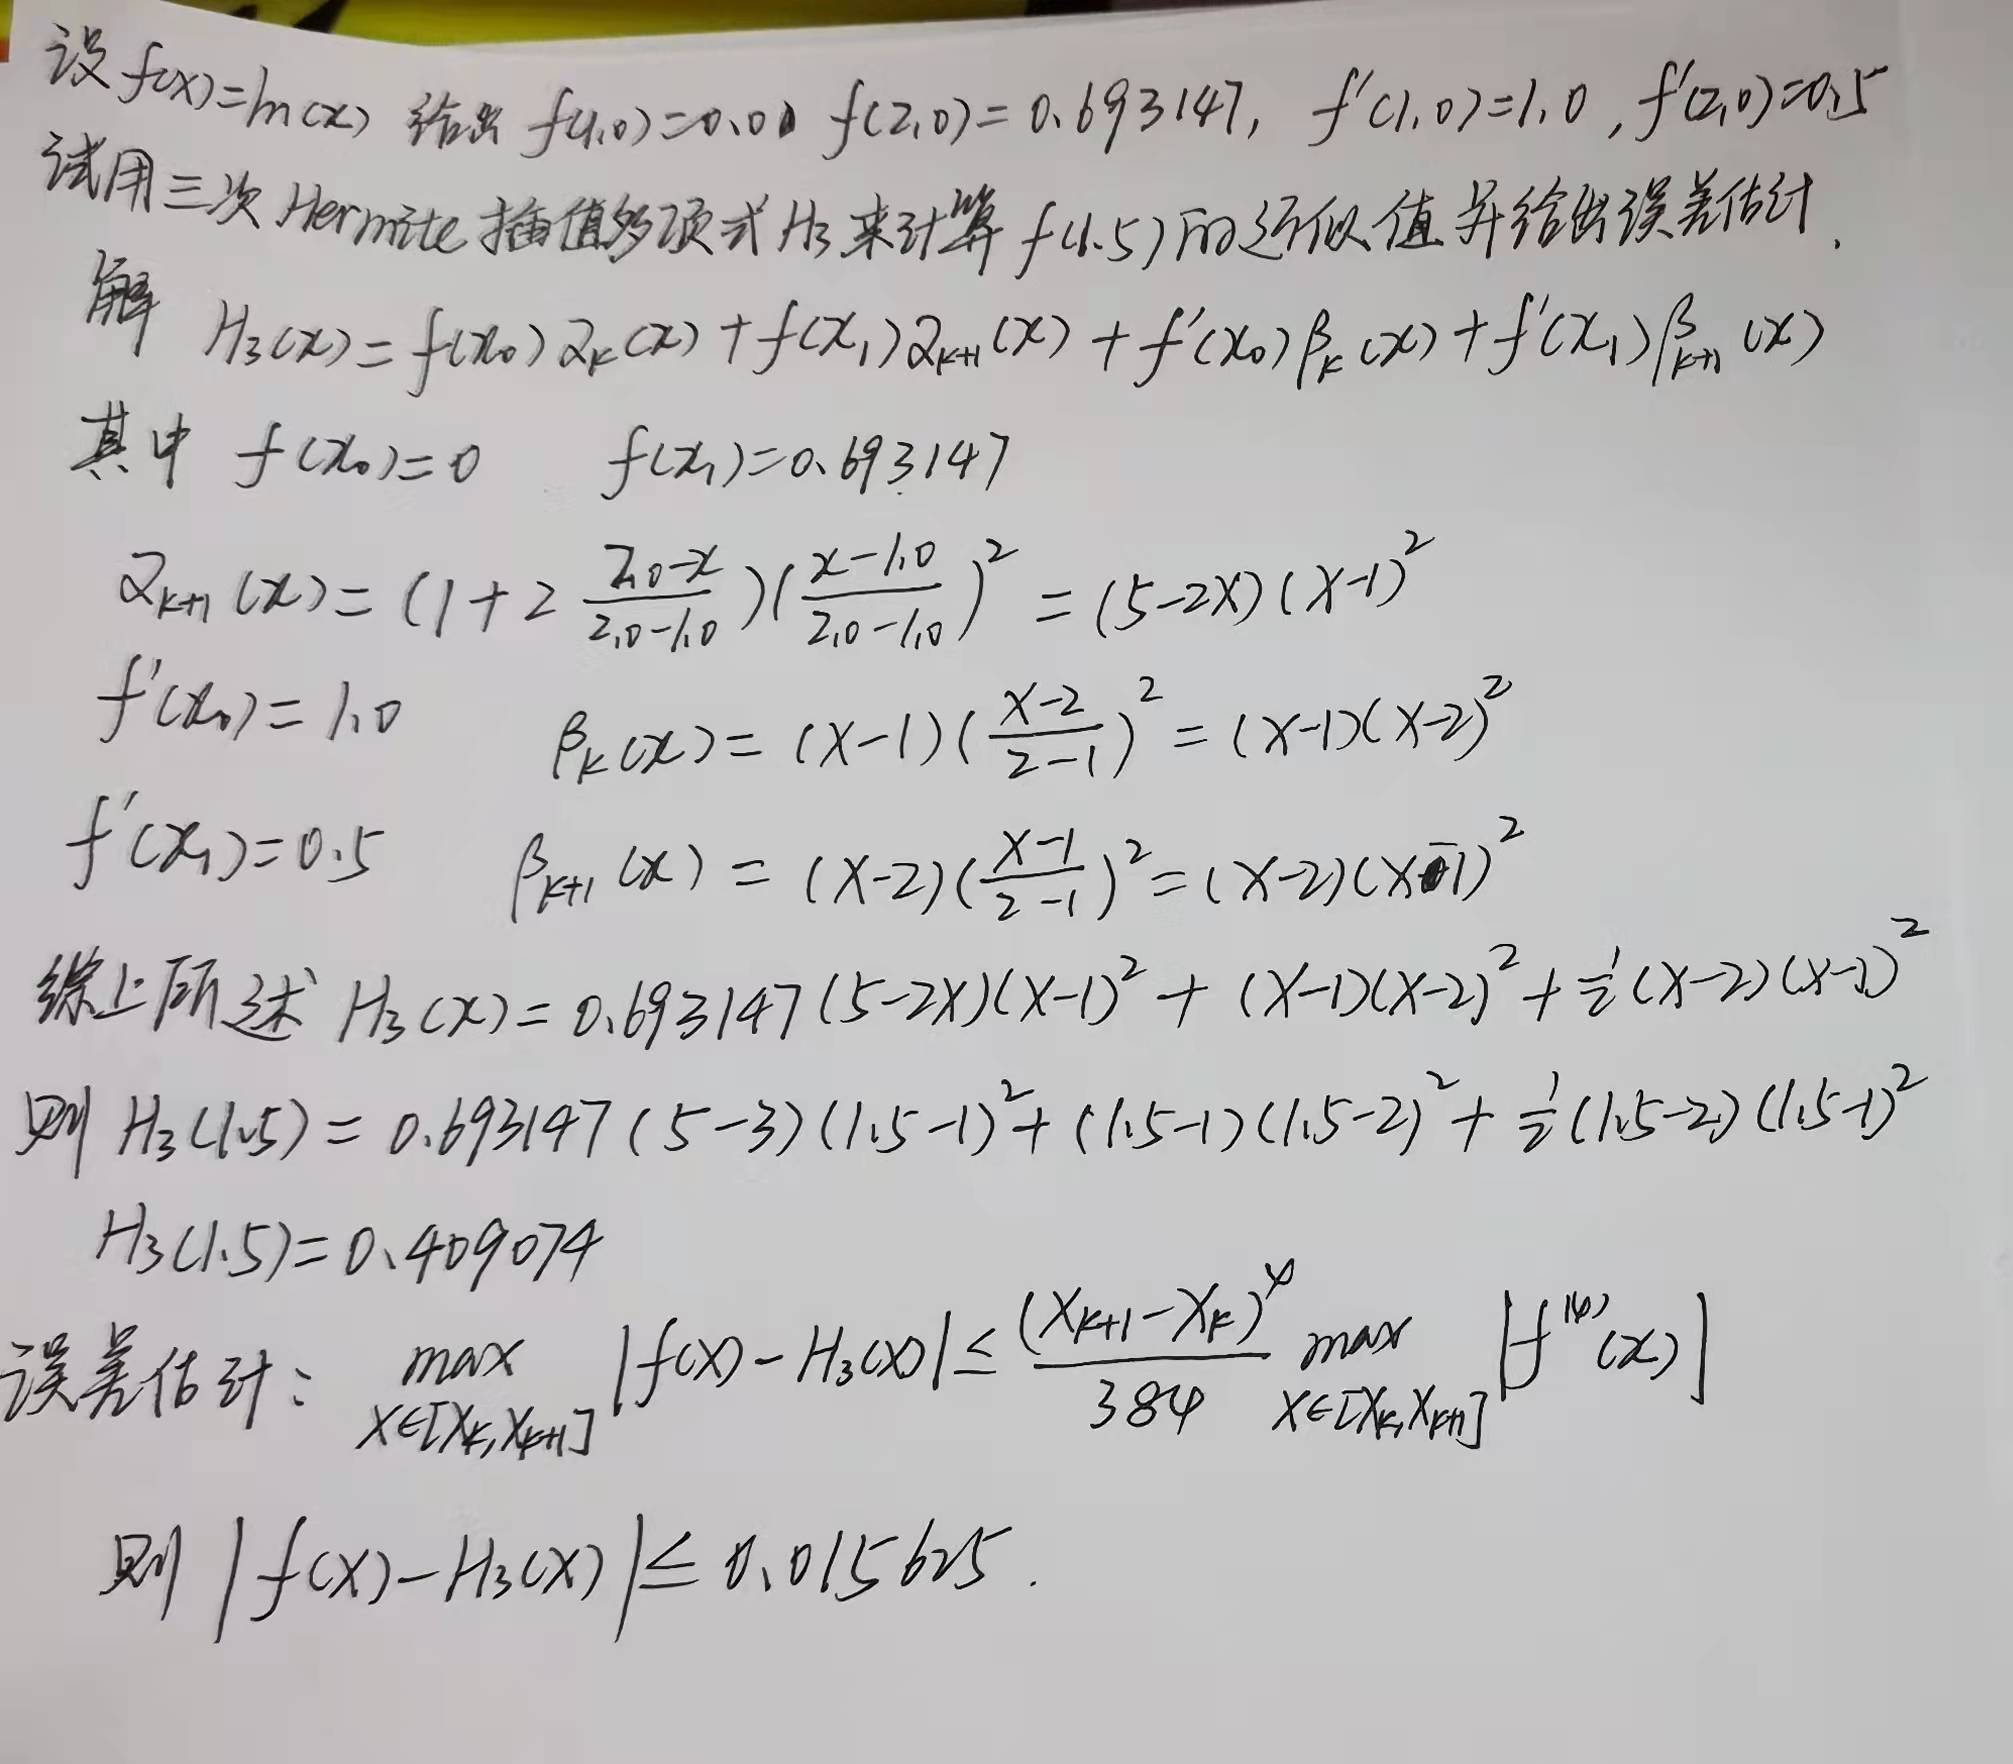 设 f(x)=ln(x) 给出 f(1.0)=0.0 f(2.0)=0.693147, f'(1.0)=1.0, f'(2.0)=0.5
试用三次Hermite插值多项式H₃来计算f(1.5)的近似值并给出误差估计.
解 H₃(x)=f(x₀)α_k(x)+f(x₁)α_{k+1}(x)+f'(x₀)β_k(x)+f'(x₁)β_{k+1}(x)
其中 f(x₀)=0 f(x₁)=0.693147
α_{k+1}(x)=(1+2\frac{2.0-x}{2.0-1.0})(\frac{x-1.0}{2.0-1.0})²=(5-2x)(x-1)²
f'(x₀)=1.0 β_k(x)=(x-1)(\frac{x-2}{2-1})²=(x-1)(x-2)²
f'(x₁)=0.5 β_{k+1}(x)=(x-2)(\frac{x-1}{2-1})²=(x-2)(x-1)²
综上所述 H₃(x)=0.693147(5-2x)(x-1)²+(x-1)(x-2)²+\frac{1}{2}(x-2)(x-1)²
则 H₃(1.5)=0.693147(5-3)(1.5-1)²+(1.5-1)(1.5-2)²+\frac{1}{2}(1.5-2)(1.5-1)²
H₃(1.5)=0.409074
误差估计: \max_{x∈[x_k,x_{k+1}]}|f(x)-H₃(x)|≤\frac{(x_{k+1}-x_k)^4}{384}\max_{x∈[x_k,x_{k+1}]}|f^{(4)}(x)|
则 |f(x)-H₃(x)|≤0.015625.